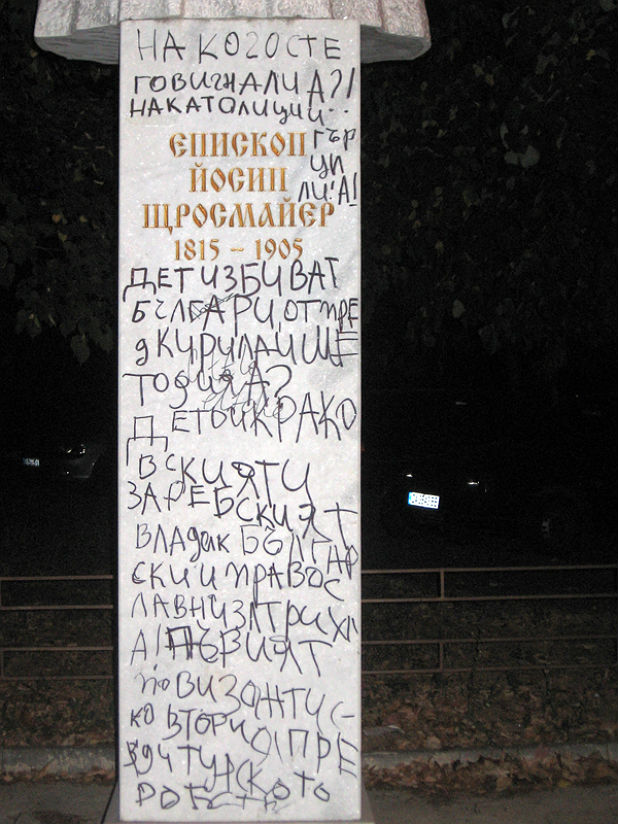 НА КОГОСТЕ
ГОВИГНАЛИ А?!
НАКАТОЛИЦИИ..
ГЪР
ЦИ
ЛИ!А!
ЕПИСКОП
ЙОСИП
ЩРОСМАЙЕР
1815 – 1905
ДЕТ ИЗБИВАТ
БЪЛГАРИ ОТ ПРЕ
Д КИРИЛА ИШЕ
ТОДИЯ А?
ДЕТО И КРАКО
ВСКИЯТ И
ЗАРЕБСКИЯТ
ВЛАДИК БЪЛГАР
СКИ И ПРАВОС
ЛАВНИ ЗАТРИХА
А! ПЪРВИЯТ
ПО ВИЗОНТИС-
КО ВТОРИО! ПРЕ
ДИ ТУРСКОТО
РОБСТВО